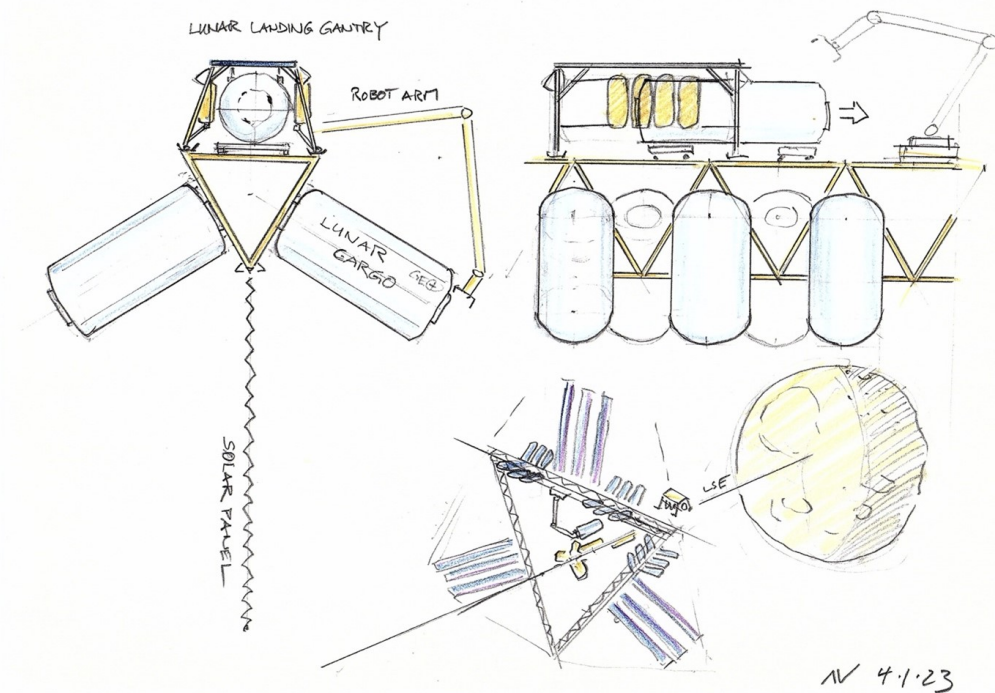 LUNAR LANDING GANTRY
ROBOT ARM
LUNAR
CARGO
SOLAR PANEL
LSE
NV 4.1.23